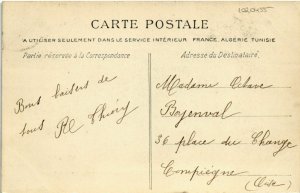 1020435
CARTE POSTALE
A UTILISER SEULEMENT DANS LE SERVICE INTÉRIEUR FRANCE, ALGERIE TUNISIE
Partie réservée à la Correspondance
Adresse du Destinataire.
Bons baisers de
tous
Madame
36 place du Change
Compiègne
(Oise)